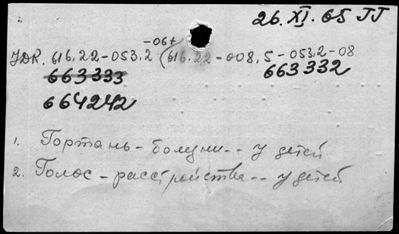 26. XI. 65 JJ
УДК. 616.22-053.2 -06+ (616.22-008,5-053.2-08
663333 663332
664242
1. Гортань - болезни -- у детей
2. Голос - расстройства -- у детей